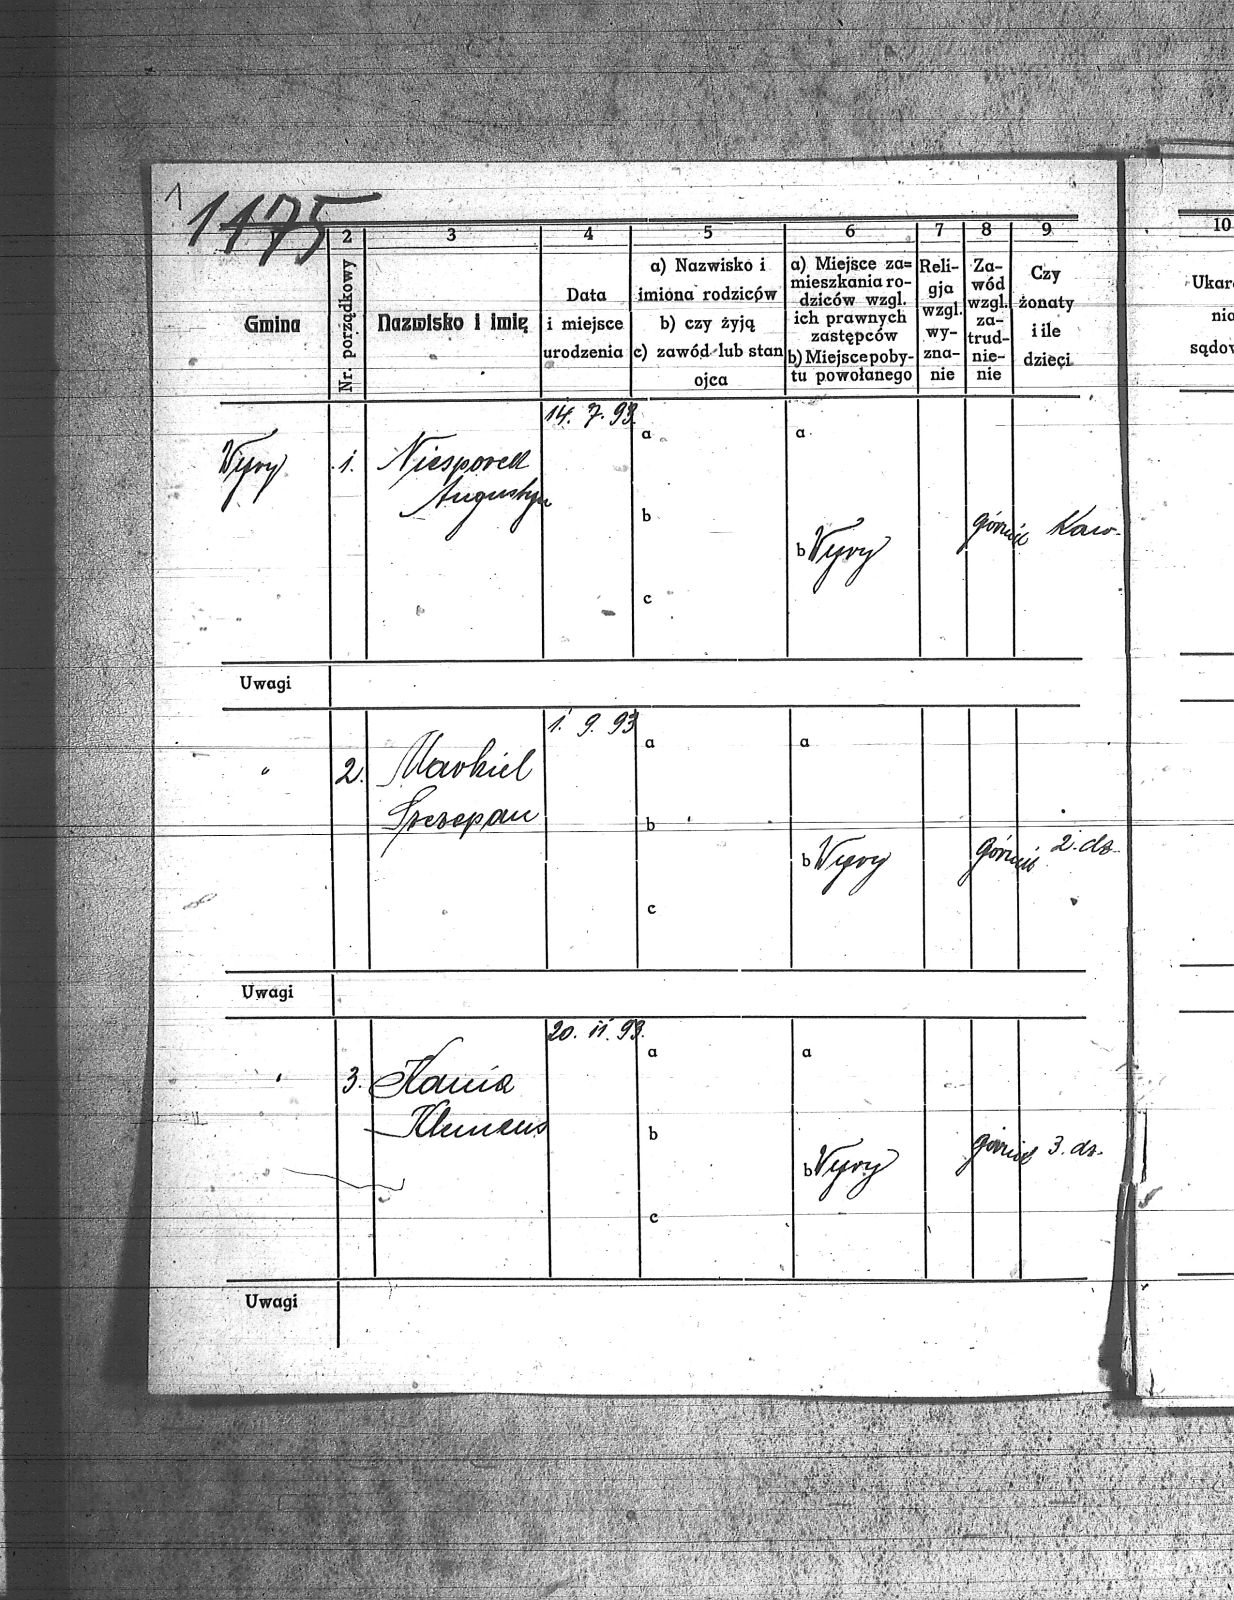 1
1175
1 2 3 4 5 6 7 8 9 10
Gmina
Nr. porządkowy
Nazwisko i imię
Data
i miejsce
urodzenia
a) Nazwisko i
imiona rodziców
b) czy żyją
c) zawód lub stan
ojca
a) Miejsce za=
mieszkania ro-
dziców wzgl.
ich prawnych
zastępców
b) Miejsce poby-
tu powołanego
Reli-
gja
wzgl.
wy-
zna-
nie
Za-
wód
wzgl.
za-
trud-
nie-
nie
Czy
żonaty
i ile
dzieci
Ukar
nia
sądow
Wyry
1.
Niesporek
Augustyn
14. 7. 93.
a
b
c
a
b Wyry
górnik
Kaw.
Uwagi
"
2.
Markiel
Szczepan
1. 9. 93
a
b
c
a
b Wyry
górnik
2. dz.
Uwagi
"
3.
Kania
Klemens
20. 11. 93.
a
b
c
a
b Wyry
górnik
3. dz.
Uwagi